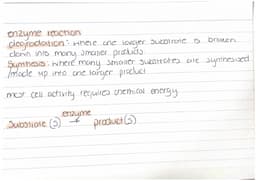 enzyme reaction
degradation: where one larger substrate is broken
down into many smaller products
Synthesis: where many smaller substrates are synthesised
/made up into one larger product
most cell activity requires chemical energy
enzyme
Substrate(s) → product(s)